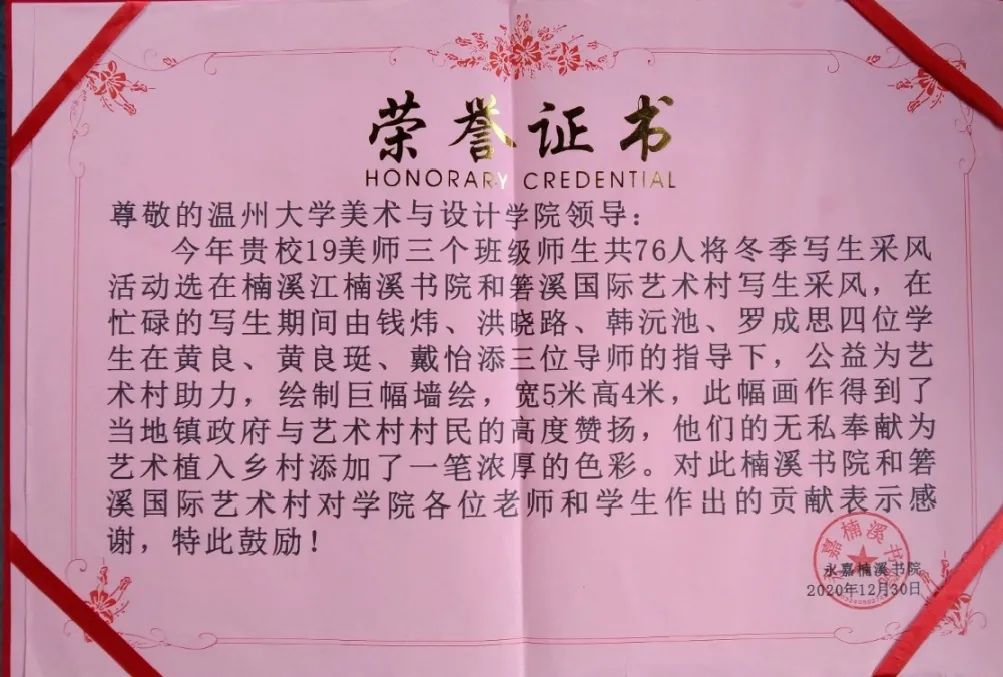 荣誉证书
HONORARY CREDENTIAL
尊敬的温州大学美术与设计学院领导：
今年贵校19美师三个班级师生共76人将冬季写生采风
活动选在楠溪江楠溪书院和箬溪国际艺术村写生采风，在
忙碌的写生期间由钱炜、洪晓路、韩沅池、罗成思四位学
生在黄良、黄良珽、戴怡添三位导师的指导下，公益为艺
术村助力，绘制巨幅墙绘，宽5米高4米，此幅画作得到了
当地镇政府与艺术村村民的高度赞扬，他们的无私奉献为
艺术植入乡村添加了一笔浓厚的色彩。对此楠溪书院和箬
溪国际艺术村对学院各位老师和学生作出的贡献表示感
谢，特此鼓励！
永嘉楠溪书院
2020年12月30日